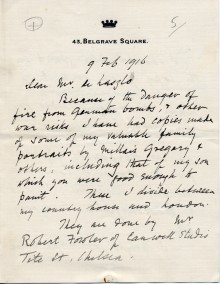 43, BELGRAVE SQUARE.
9 Feb 1916
Dear Mr. de Laszlo
Because of the danger of
fire from German bombs, & other
war risks I have had copies made
of some of my valuable family
portraits by Millais Gregory &
others, including that of my son
which you were good enough to
paint. These I divide between
my country house and London.
They are done by Mr
Robert Fowler of Studio
Tite St. Chelsea.